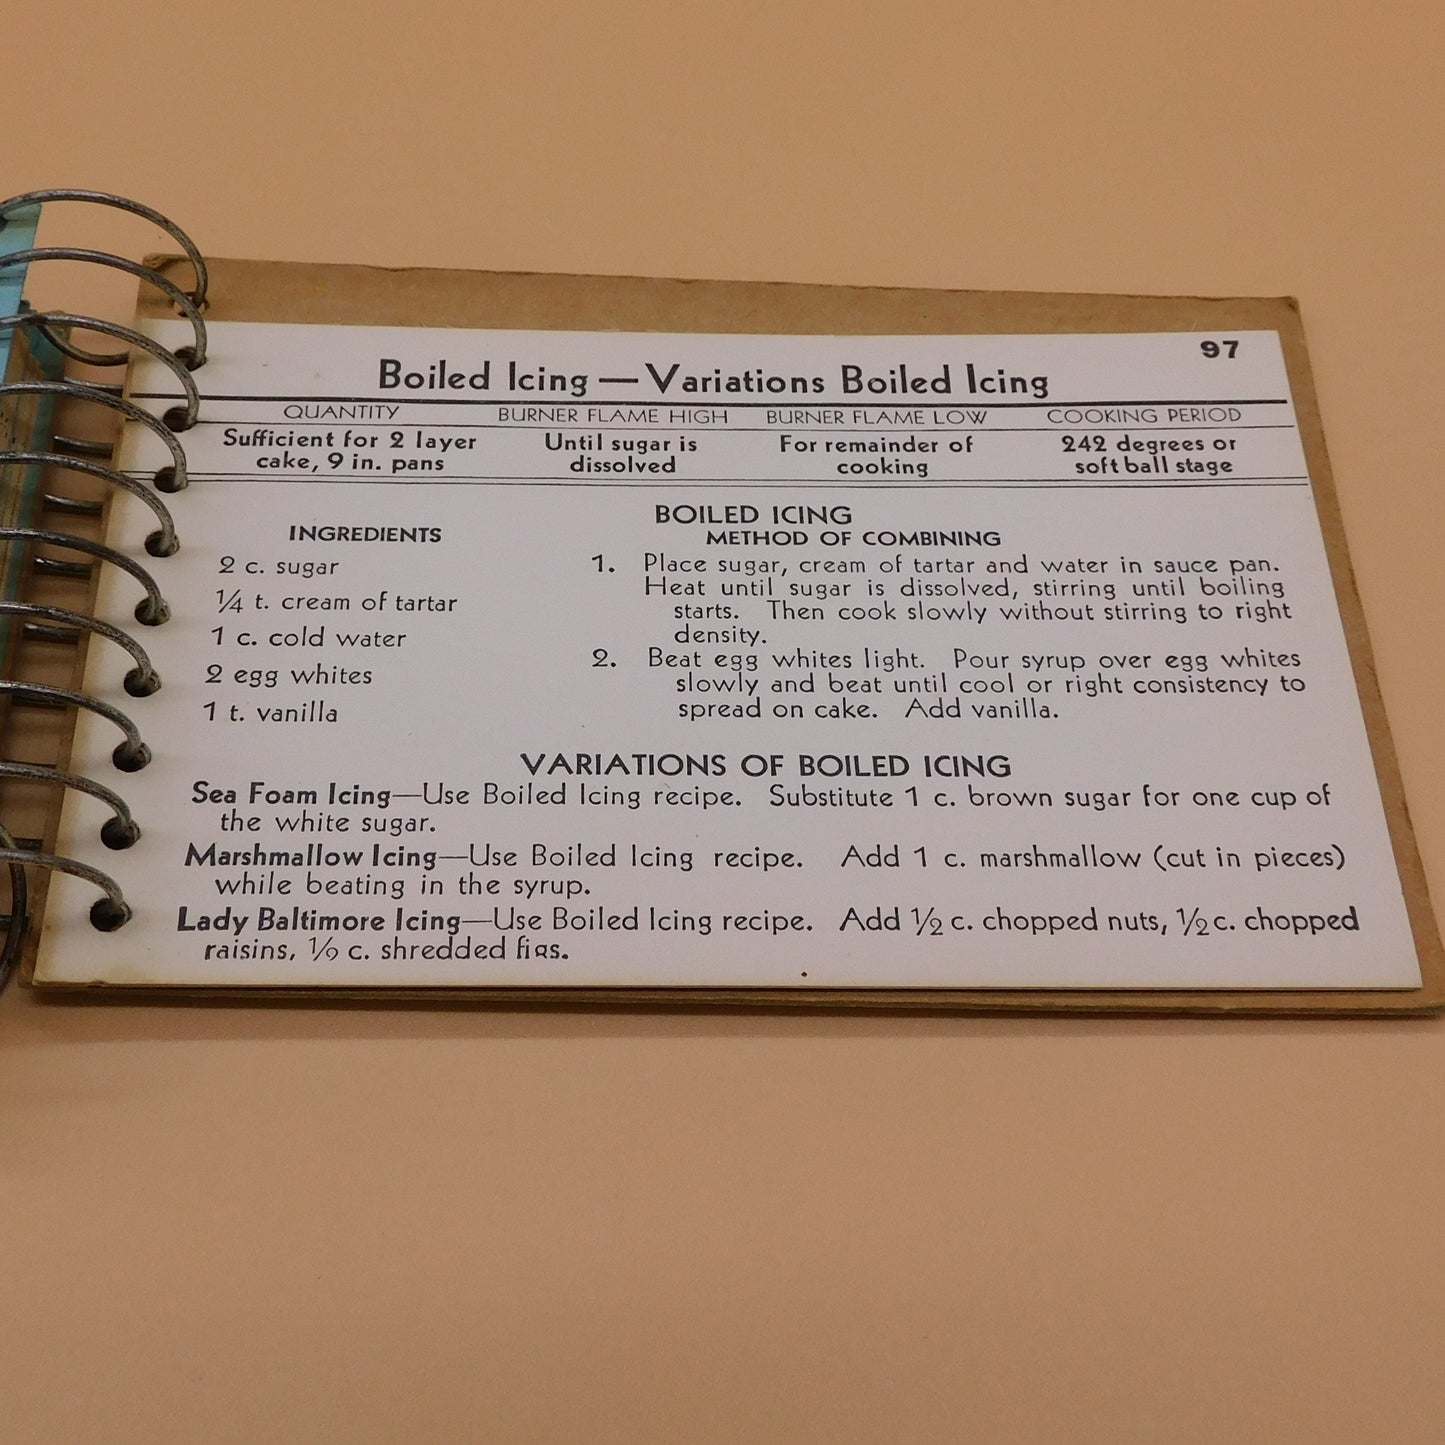 97
Boiled Icing — Variations Boiled Icing
QUANTITY BURNER FLAME HIGH BURNER FLAME LOW COOKING PERIOD
Sufficient for 2 layer Until sugar is For remainder of 242 degrees or
cake, 9 in. pans dissolved cooking soft ball stage
BOILED ICING
INGREDIENTS
METHOD OF COMBINING
2 c. sugar
¼ t. cream of tartar
1 c. cold water
2 egg whites
1 t. vanilla
1. Place sugar, cream of tartar and water in sauce pan.
Heat until sugar is dissolved, stirring until boiling
starts. Then cook slowly without stirring to right
density.
2. Beat egg whites light. Pour syrup over egg whites
slowly and beat until cool or right consistency to
spread on cake. Add vanilla.
VARIATIONS OF BOILED ICING
Sea Foam Icing—Use Boiled Icing recipe. Substitute 1 c. brown sugar for one cup of
the white sugar.
Marshmallow Icing—Use Boiled Icing recipe. Add 1 c. marshmallow (cut in pieces)
while beating in the syrup.
Lady Baltimore Icing—Use Boiled Icing recipe. Add ½ c. chopped nuts, ½ c. chopped
raisins, ½ c. shredded figs.